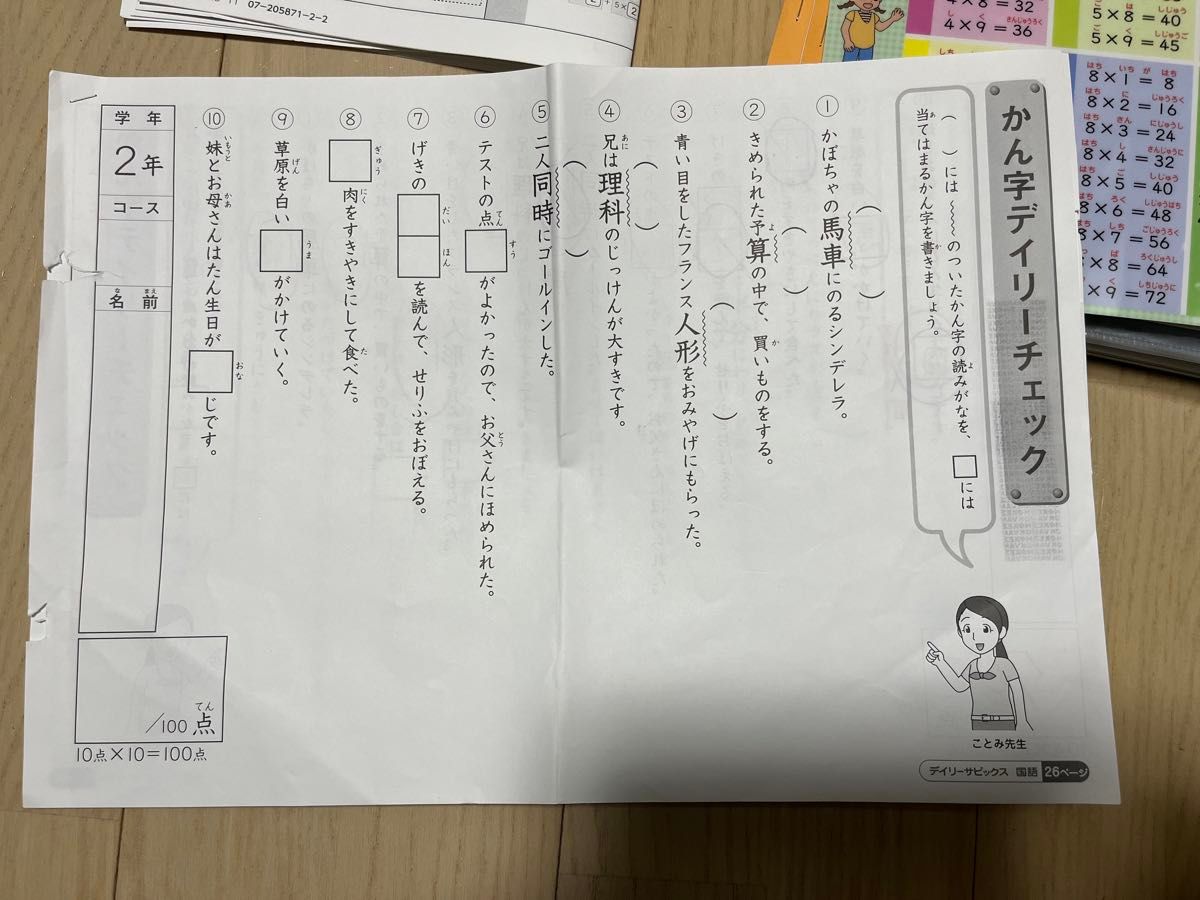 07-205871-2-2
かん字デイリーチェック
（　）には〰〰のついたかん字の読みがなを、□には
当てはまるかん字を書きましょう。
① かぼちゃの馬車にのるシンデレラ。
② きめられた予算の中で、買いものをする。
③ 青い目をしたフランス人形をおみやげにもらった。
④ 兄は理科のじっけんが大すきです。
⑤ 二人同時にゴールインした。
⑥ テストの点□がよかったので、お父さんにほめられた。
⑦ げきの□□を読んで、せりふをおぼえる。
⑧ □肉をすきやきにして食べた。
⑨ 草原を白い□がかけていく。
⑩ 妹とお母さんはたん生日が□じです。
あ
か
よ
よ
か
あに
てん
すう
とう
だい
ほん
ぎゅう
にく
た
げん
うま
いもうと
かあ
おな
学年
2年
コース
名前
なまえ
/100点
てん
10点×10=100点
ことみ先生
デイリーサピックス 国語 26ページ
4×8=32
4×9=36
しく さんじゅうろく
5×8=40
5×9=45
8×1=8
8×2=16
8×3=24
8×4=32
8×5=40
8×6=48
8×7=56
×8=64
×9=72